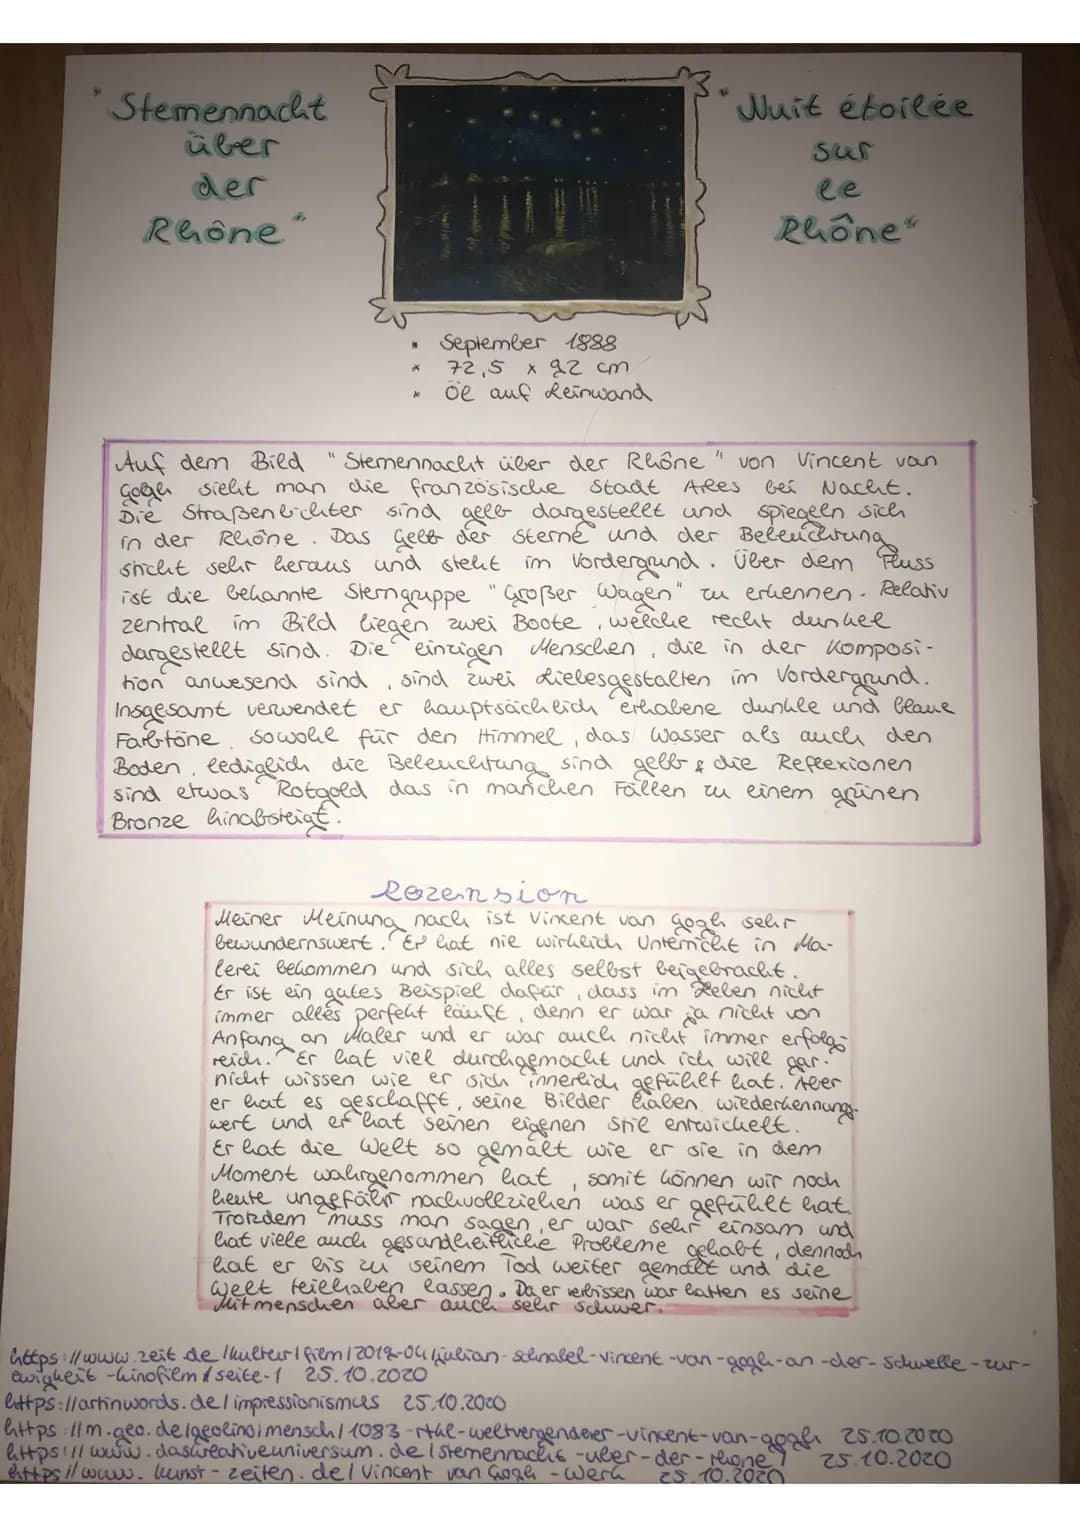 "Sternennacht
über
der
Rhône"
"Nuit étoilée
sur
le
Rhône"
September 1888
72,5 x 92 cm
Öl auf Leinwand
Auf dem Bild "Sternennacht über der Rhône" von Vincent van
Gogh sieht man die französische Stadt Arles bei Nacht.
Die Straßenlichter sind gelb dargestellt und spiegeln sich
in der Rhône. Das Gelb der Sterne und der Beleuchtung
sticht sehr heraus und steht im Vordergrund. Über dem Fluss
ist die bekannte Sterngruppe "Großer Wagen" zu erkennen. Relativ
zentral im Bild liegen zwei Boote, welche recht dunkel
dargestellt sind. Die einzigen Menschen, die in der Komposi-
tion anwesend sind, sind zwei Liebesgestalten im Vordergrund.
Insgesamt verwendet er hauptsächlich erhabene dunkle und blaue
Farbtöne, sowohl für den Himmel, das Wasser als auch den
Boden, lediglich die Beleuchtung sind gelb & die Reflexionen
sind etwas Rotgold das in manchen Fällen zu einem grünen
Bronze hinabsteigt.
Rezension
Meiner Meinung nach ist Vincent van Gogh sehr
bewundernswert. Er hat nie wirklich Unterricht in Ma-
lerei bekommen und sich alles selbst beigebracht.
Er ist ein gutes Beispiel dafür, dass im Leben nicht
immer alles perfekt läuft, denn er war ja nicht von
Anfang an Maler und er war auch nicht immer erfolg-
reich. Er hat viel durchgemacht und ich will gar
nicht wissen wie er sich innerlich gefühlt hat. Aber
er hat es geschafft, seine Bilder haben wiedererkennungs-
wert und er hat seinen eigenen Stil entwickelt.
Er hat die Welt so gemalt wie er sie in dem
Moment wahrgenommen hat, somit können wir noch
heute ungefähr nachvollziehen was er gefühlt hat.
Trotzdem muss man sagen, er war sehr einsam und
hat viele auch gesundheitliche Probleme gehabt, dennoch
hat er bis zu seinem Tod weiter gemalt und die
Welt teilhaben lassen. Da er verbissen war hatten es seine
Mitmenschen aber auch sehr schwer.
https://www.zeit.de/kultur/film/2019-04/julian-schnabel-vincent-van-gogh-an-der-schwelle-zur-
ewigkeit-kinofilm/seite-1 25.10.2020
https://artinwords.de/impressionismus 25.10.2020
https://m.geo.de/geolino/mensch/1083-rtkl-weltveraenderer-vincent-van-gogh 25.10.2020
https://www.daskreativeuniversum.de/sternennacht-uber-der-rhone/ 25.10.2020
https//www.kunst-zeiten.de/Vincent van Gogh-Werk 25.10.2020